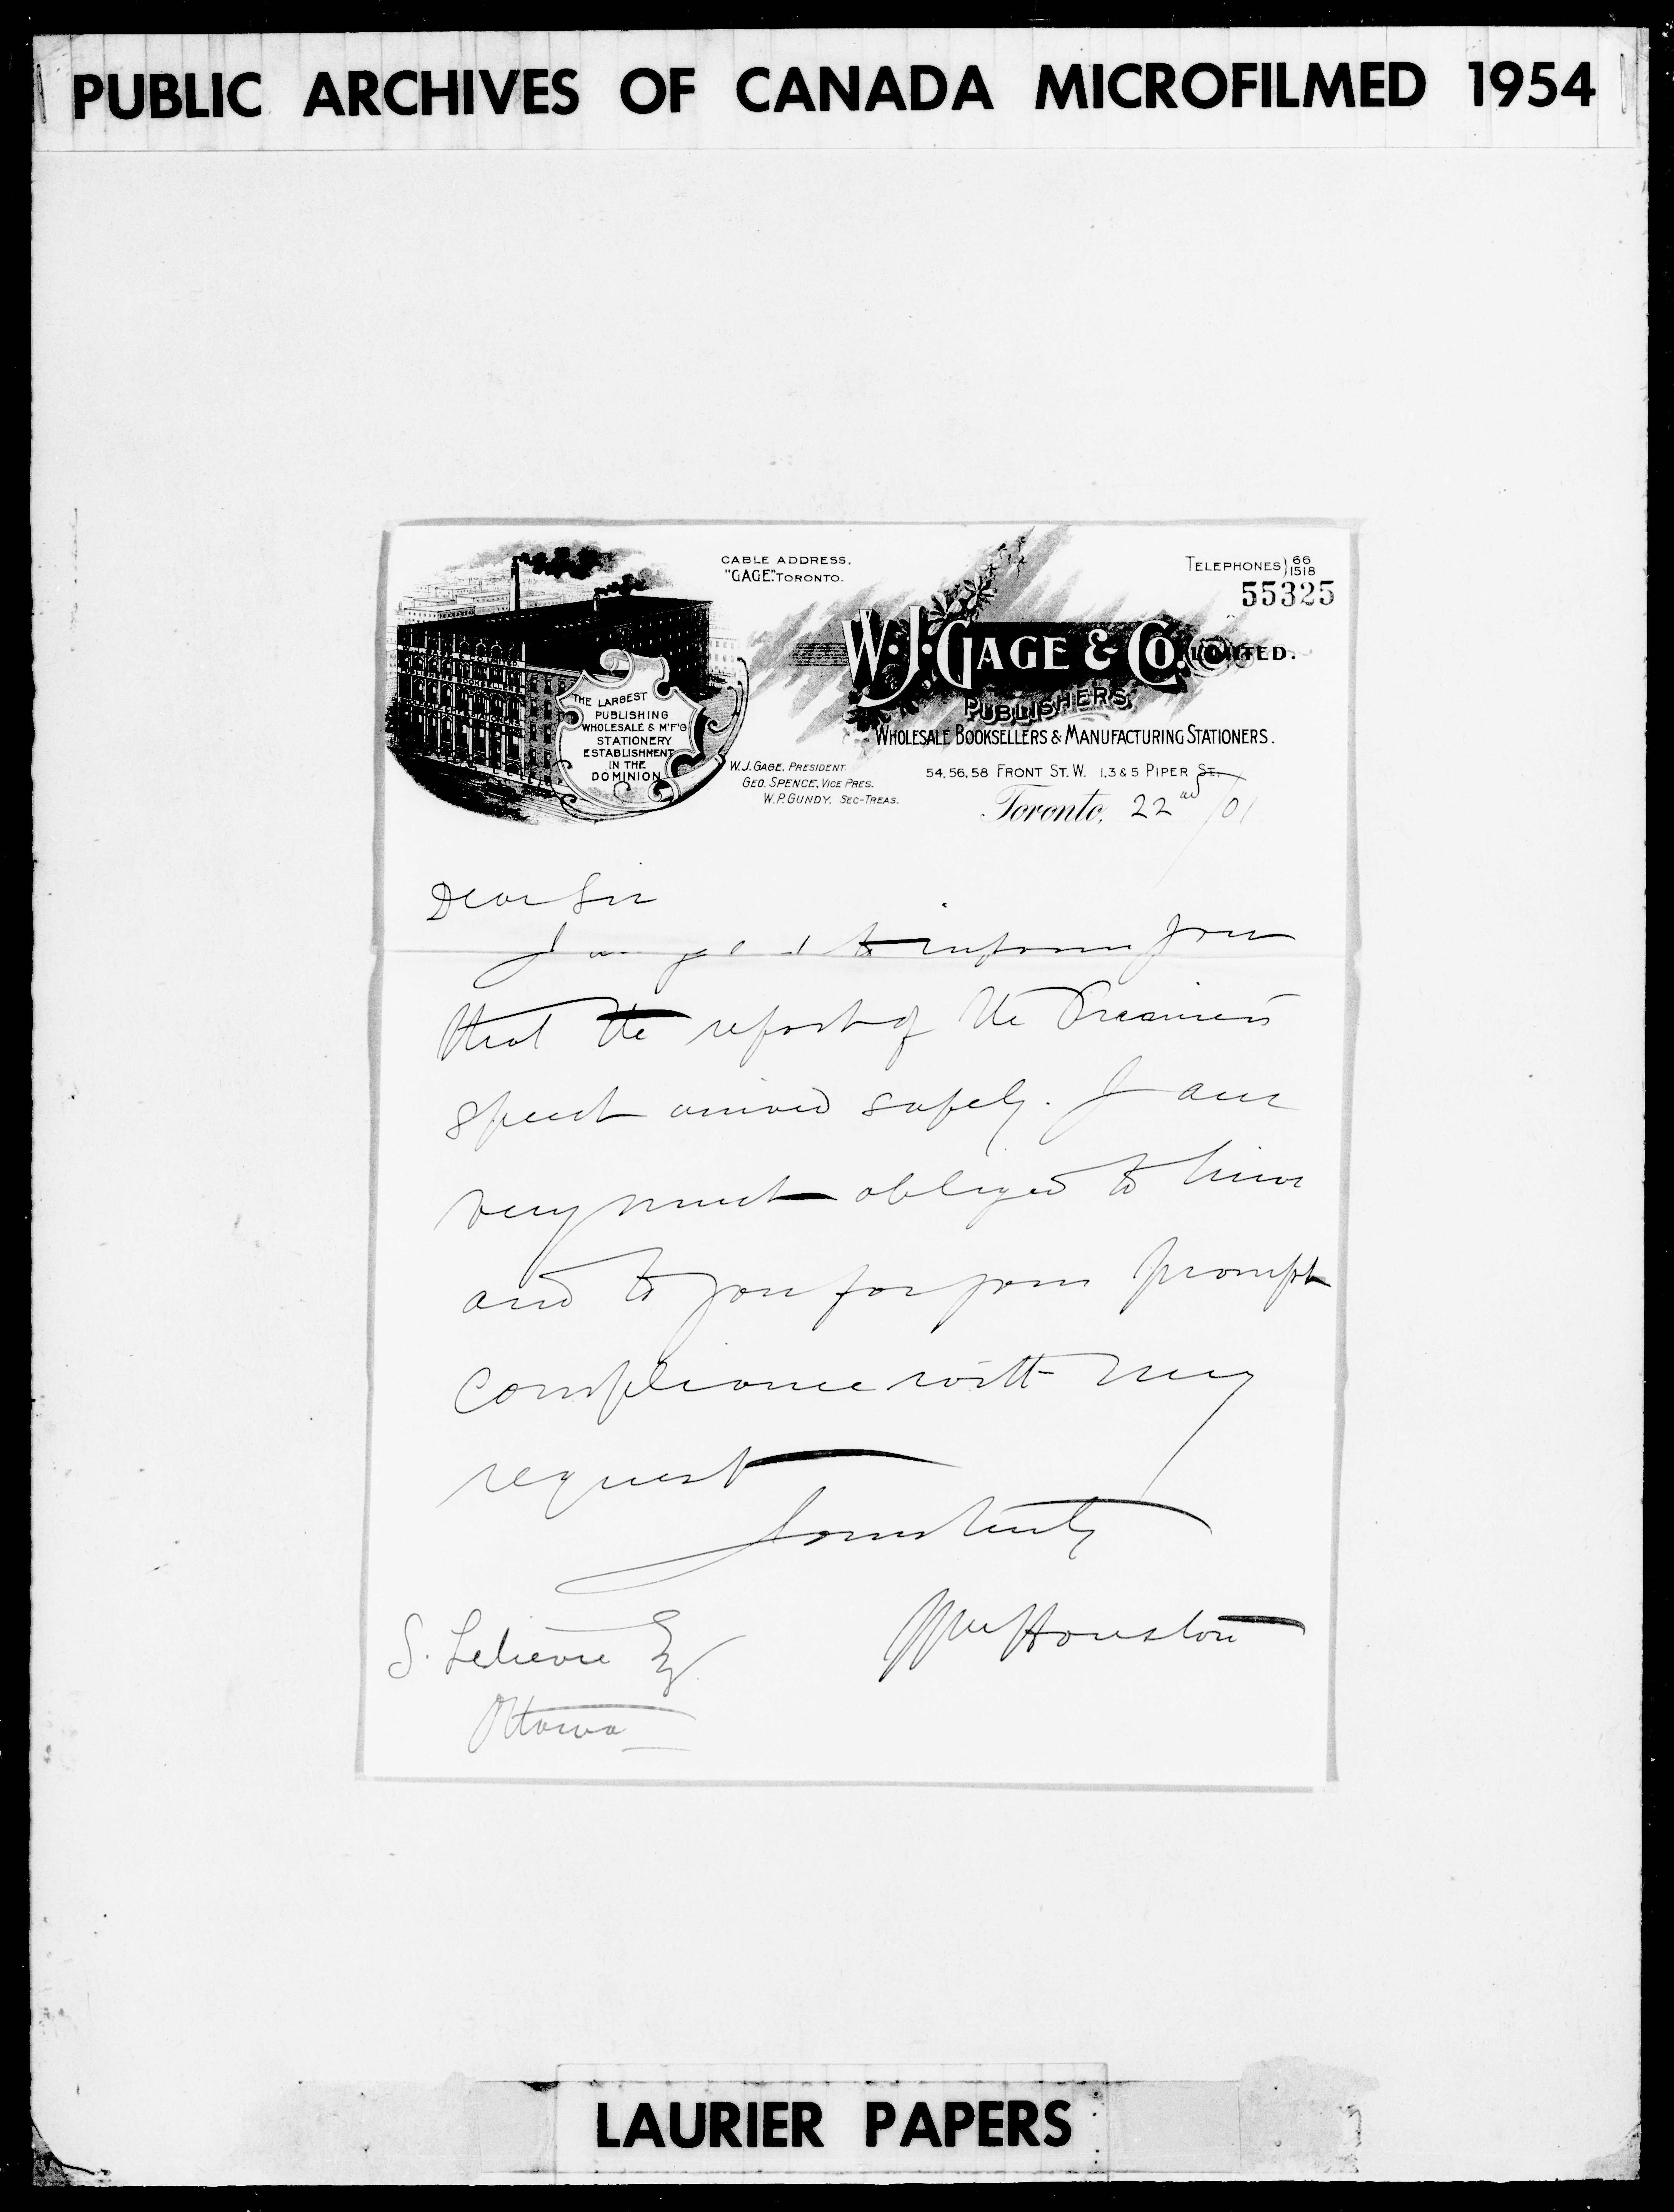 PUBLIC ARCHIVES OF CANADA MICROFILMED 1954
CABLE ADDRESS,
"GAGE" TORONTO.
TELEPHONES } 66
1518
55325
W. J. GAGE & CO. LIMITED.
PUBLISHERS,
WHOLESALE BOOKSELLERS & MANUFACTURING STATIONERS.
THE LARGEST
PUBLISHING
WHOLESALE & M'F'G
STATIONERY
ESTABLISHMENT
IN THE
DOMINION
W. J. GAGE, PRESIDENT.
GEO. SPENCE, VICE PRES.
W. P. GUNDY, SEC-TREAS.
54, 56, 58 FRONT ST. W. 1, 3 & 5 PIPER ST.
Toronto, 22nd /01
Dear Sir
I am glad to inform you
that the report of the Premier's
speech arrived safely. I am
very much obliged to him
and to you for your prompt
compliance with my
request
Yours truly
Wm Houston
S. Lelievre Esq
Ottawa
LAURIER PAPERS